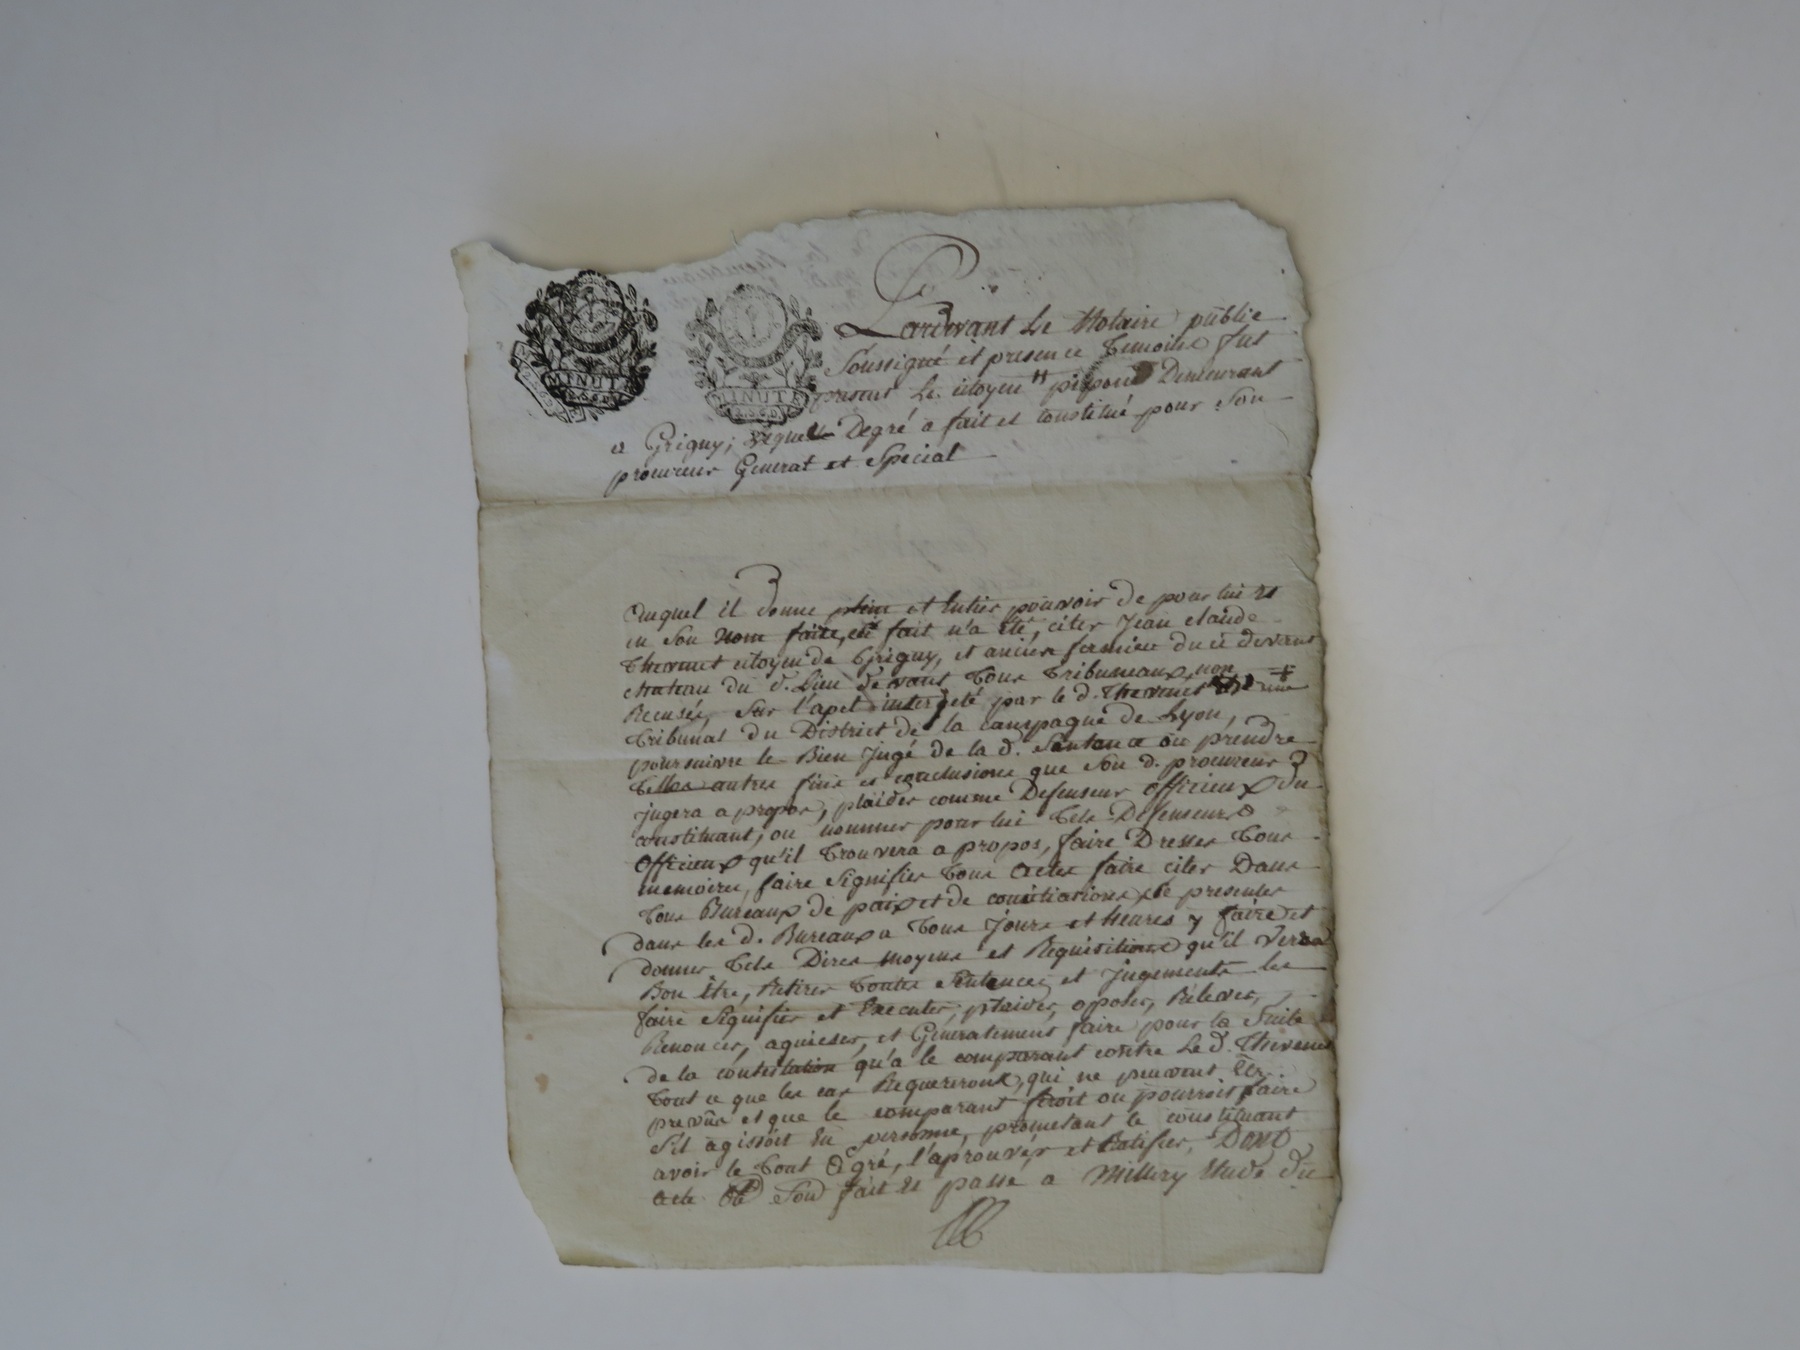 MINUTE
MINUTE
Pardevant Le Notaire publie
Soussigné et presence Temoins fut
present Le citoyen pipon Demeurant
a Grigny; Lequel Degré a fait et constitué pour Son
procureur General et Special
Duquel il donne plein et Entier pouvoir de pour lui et
en Son Nom faite, si fait n'a été, citer Jean claude
Thevenet citoyen de Grigny, et ancien fermier du ci devant
chateau du d. Lieu devant Tous Tribuneaux non
Recusés, Sur l'apel interjeté par le d. Thevenet une
Tribunal du District de la campagne de Lyon,
poursuivre le Bien Jugé de la d. Sentance ou prendre
Telles autres fins et conclusions que Son d. procureur
jugera a propos, plaider comme Defenseur officieux du
constituant, ou nommer pour lui Tels Defenseurs
Officieux qu'il Trouvera a propos, faire Dresser Tous
memoires, faire Signifier Tous Actes faire citer Dans
Tous Bureaux de paix et de conciliations, se presenter
dans les d. Bureaux a Tous Jours et heures y faire et
donner Tels Dires moyens et Requisitions qu'il Verra
Bon Etre, Retirer Toutes Sentences et jugements les
faire Signifier et Executer, plaider, oposer, Relever,
Renoncer, aquieser, et Généralement faire pour la Suite
de la contestation qu'a le comparant contre Le d. Thevenet
Tout ce que les cas Requereront, qui ne peuvent Etre
prevus et que le comparant feroit ou pourroit faire
S'il agissoit En personne, prometant le constituant
avoir le Tout Agré, l'aprouver et Ratifier, Dont
Acte fait et passé a Millery Etude du